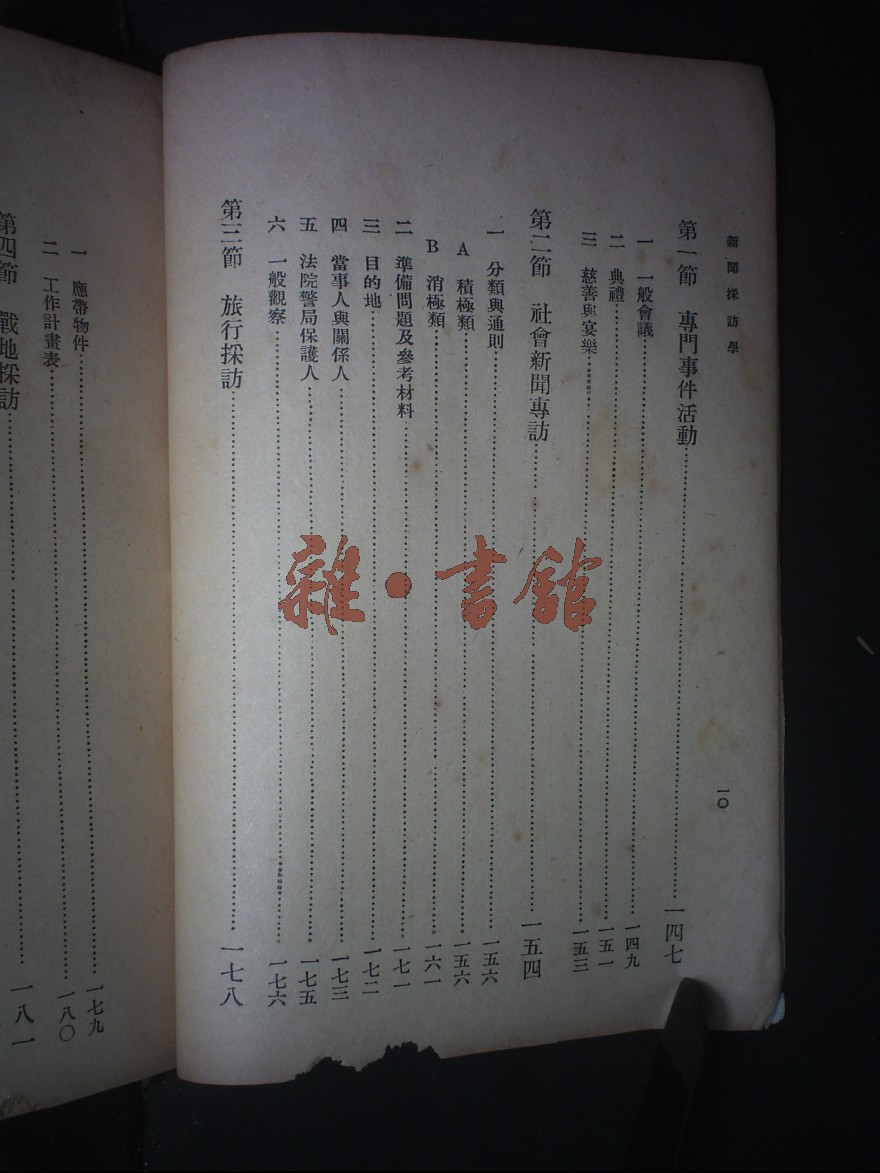 新聞採訪學
一〇
第一節　專門事件活動……一四七
一　一般會議……一四九
二　典禮……一五一
三　慈善與宴樂……一五三
第二節　社會新聞專訪……一五四
一　分類與通則……一五六
A　積極類……一五六
B　消極類……一六一
二　準備問題及參考材料……一七一
三　目的地……一七二
四　當事人與關係人……一七三
五　法院警局保護人……一七五
六　一般觀察……一七六
第三節　旅行採訪……一七八
一　應帶物件……一七九
二　工作計畫表……一八〇
第四節　戰地採訪……一八一
雜·書館